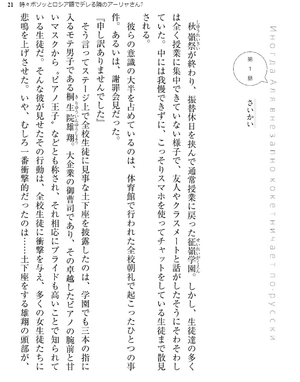 21 時々ボソッとロシア語でデレる隣のアーリャさん7
Иногда Аля внезапно кокетничает по-русски
第1話
さいかい
秋嶺祭が終わり、振替休日を挟んで通常授業に戻った征嶺学園。しかし、生徒達の多く
は全く授業に集中できていない様子で、友人やクラスメートと話がしたそうにそわそわし
ていた。中には我慢できずに、こっそりスマホを使ってチャットをしている生徒まで散見
される。
彼らの意識の大半を占めているのは、体育館で行われた全校朝礼で起こったひとつの事
件。あるいは、謝罪会見だった。
『申し訳ありませんでした』
そう言ってステージ上で全校生徒に見事な土下座を披露したのは、学園でも三本の指に
入るモテ男子である桐生院雄翔。大企業の御曹司であり、その卓越したピアノの腕前と甘
いマスクから、"ピアノ王子"などとも称され、それ相応にプライドも高いことで知られて
いる生徒だ。そんな彼が見せたこの行動は、全校生徒に衝撃を与え、多くの女生徒たちに
悲鳴を上げさせた。いや、むしろ一番衝撃的だったのは……土下座をする雄翔の頭部が、